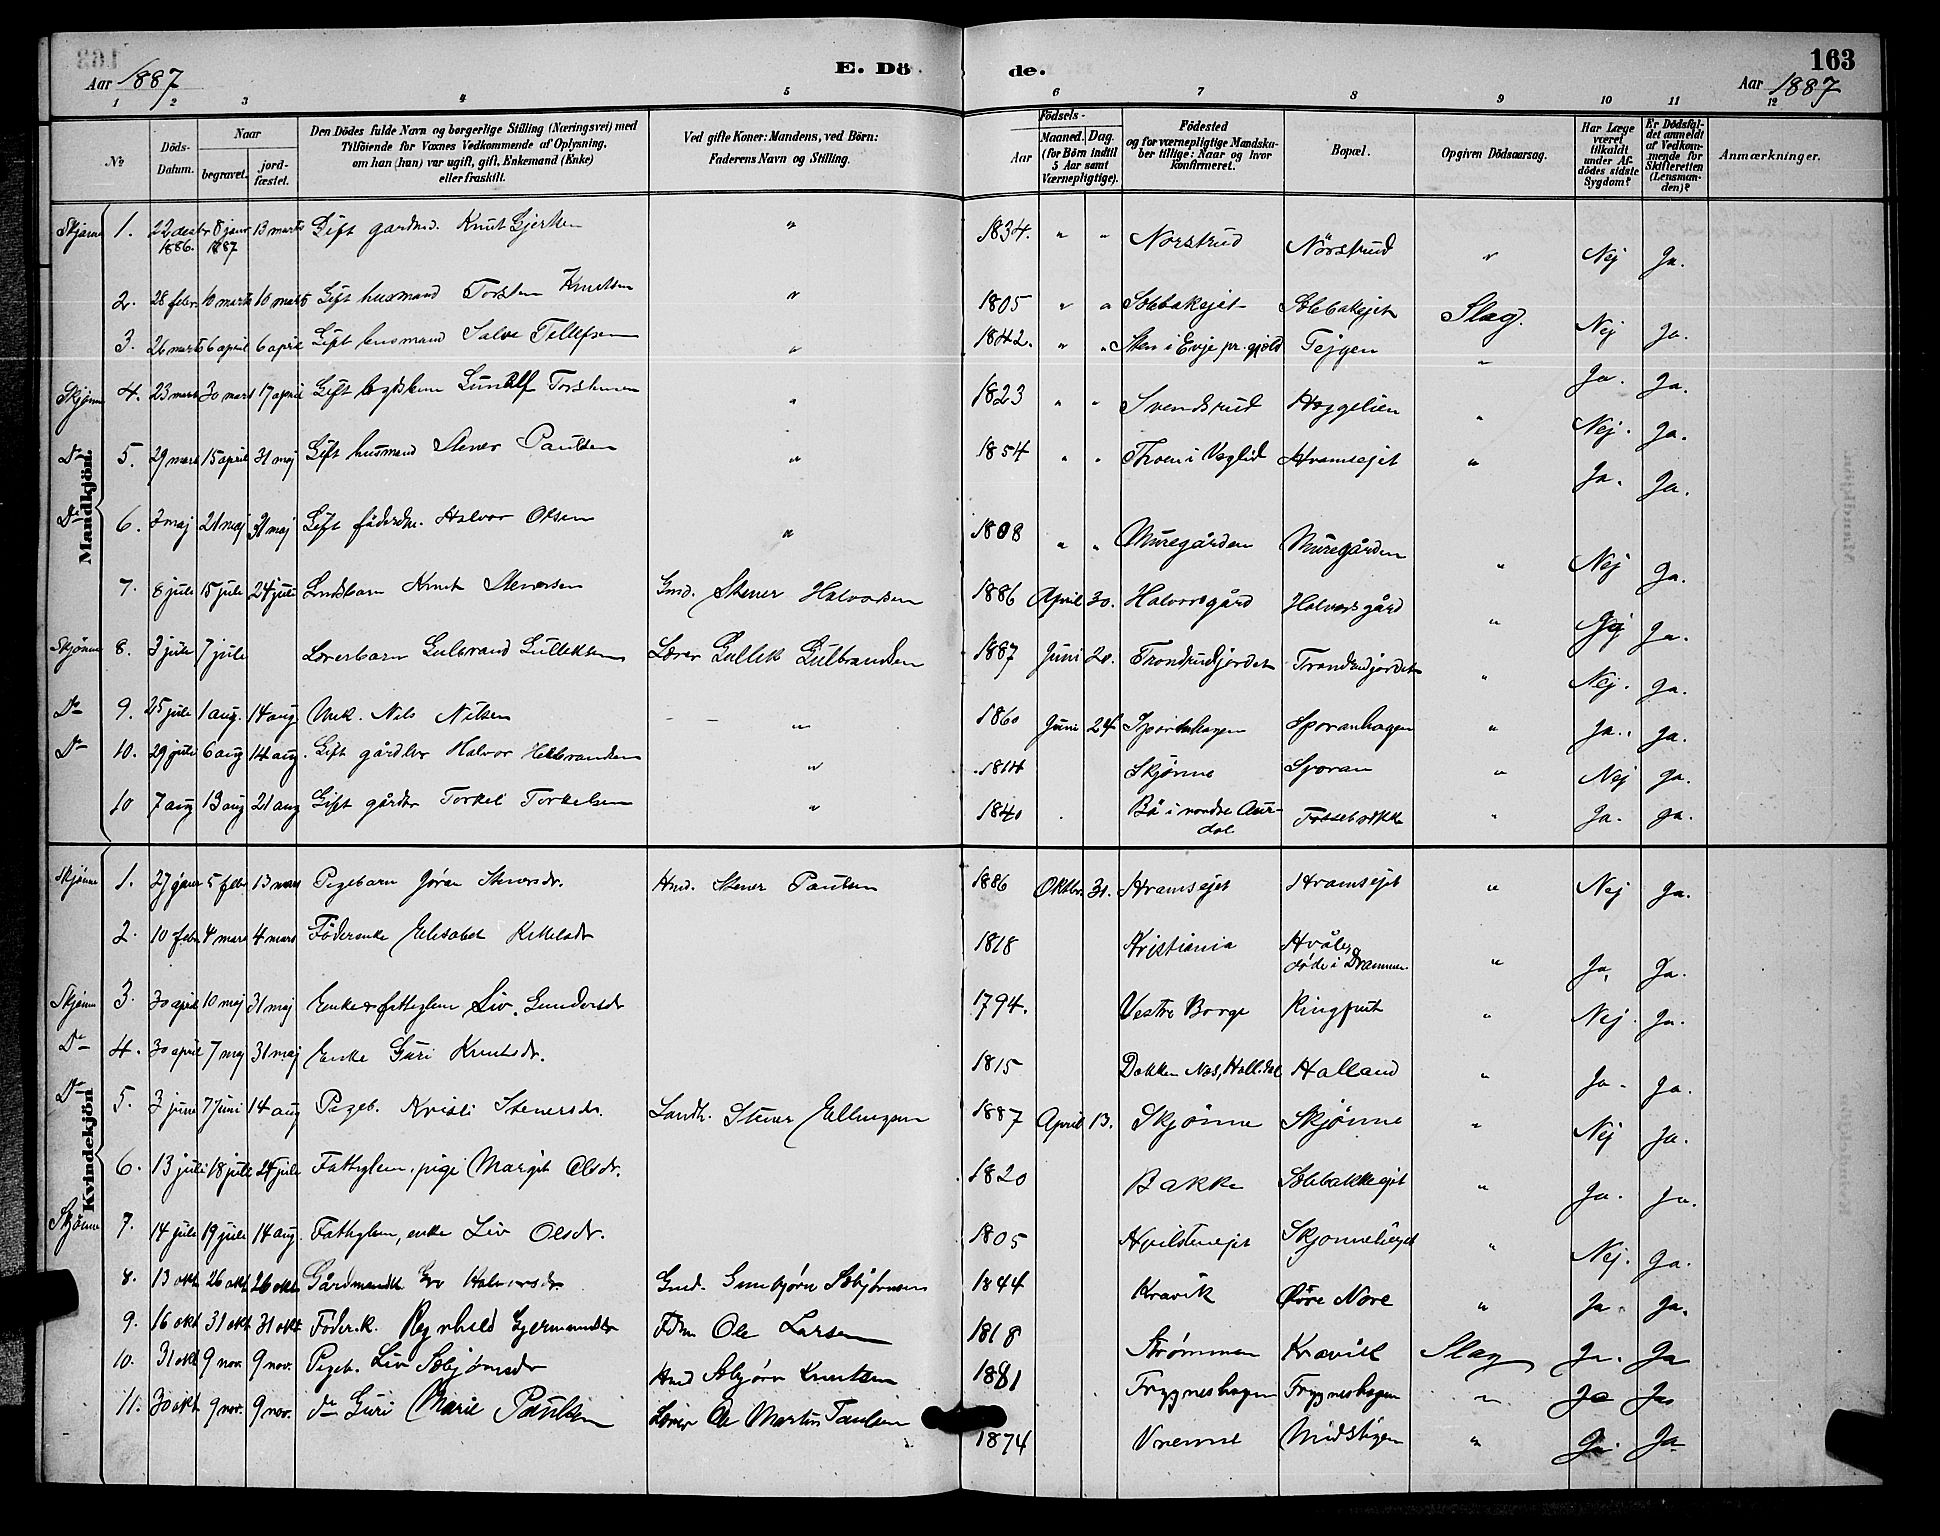 Aar 1887 E. Dö de. 163
Aar 1887
1 2 3 4 5 6 7 8 9 10 11 12
No
Döds-Datum.
Naar
begravet.
jord-fæstet.
Den Dödes fulde Navn og borgerlige Stilling (Næringsvei) med
Tilföiende for Voxnes Vedkommende af Oplysning,
om han (hun) var ugift, gift, Enkemand (Enke)
eller fraskilt.
Ved gifte Koner: Mandens, ved Börn:
Faderens Navn og Stilling.
Födsels-
Aar
Maaned. Dag.
(for Börn indtil
5 Aar samt
Værnepligtige).
Födested
og for værnepligtige Mandska-
ber tillige: Naar og hvor
konfirmeret.
Bopæl.
Opgiven Dödsaarsag.
Har Læge
været
tilkaldt
under Af-
dödes sidste
Sygdom?
Er Dödsfal-
det anmeldt
af Vedkom-
mende for
Skifteretten
(Lensman-
den)?
Anmærkninger.
Mandkjön.
Skjønne 1. 22 desbr 1886. 8 janr 1887 13 marts Gift gardmd. Knut Gjerksen " 1834. " " Norstrud Nörstrud " Nej Ja.
2. 28 febr 10 marts 10 marts Gift husmand Torsten Knutsen " 1805 " " Solebakejet Solebakejet Slag. Nej Ja.
3. 26 marts 6 april 6 april Gift husmand Salve Tellefsen " 1842. " " Sten i Evje pr.gjæld Tejgen " Ja. Ja.
Skjønne 4. 23 mars 30 mars 17 april Gift Torstensen " 1823 " " Svendsrud Haggelien " Nej. Ja.
Do 5. 29 mars 15 april 31 maj Gift husmand Stener Paulsen " 1854 " " Thoen i Veglid Hvamsejet " Ja. Ja.
Do 6. 3 maj 21 maj 31 maj Gift föderdm. Halvor Olsen " 1808 " " Muregården Muregården " Nej Ja.
7. 8 jule 15 jule 24 juli Knut Stenersen Gmd. Stener Halvorsen 1886 April 30. Halvorsgård Halvorsgård " Ja.
Skjønne 8. 3 jule 7 jule Lærerbarn Gulbrand Gulleksen Lærer Gullik Gulbrandsen 1887 Juni 20. Trondrudjordet Trondrudjordet " Nej. Ja.
Do 9. 25 jule 1 aug. 14 aug Unk. Nils Nilsen " 1860 Juni 24 Sporanhagen Sporanhagen " Ja. Ja.
Do 10. 29 juli 6 aug 14 aug. Gift Halvor " 1814 Skjønne Sporan " Nej Ja.
10 7 aug 13 aug 21 aug Gift gårdbr Torkel Torkelsen " 1840 Bö i nordre Aurdal " Ja. Ja.
Kvindekjön
Skjønne 1. 27 janr 5 febr 13 mars Pigebarn Jøran Stenersdr. Hmd. Stener Paulsen 1886 Oktbr. 30. Hvamsejet Hvamsejet " Nej Ja.
2. 10 febr 4 mars 4 mars Föderenke Elisabet Kittelsdr 1818 Kristiania Hvåle, døde i Drammen. " Ja. Ja.
Skjønne 3. 30 april 10 maj 31 maj Enke & fattiglem Liv Gundersdr 1794. Vestre Borge " Nej. Ja.
Do 4. 30 april 7 maj 31 maj Enke Guri Knutsdr. 1815 Dokken Nes, Hall.dal Halland " Ja. Ja.
Do 5. 3 june 7 juni 14 aug Pigeb. Kristi Stenersdr. Landh. Stener Ellingsen 1887 April 13. Skjønne Skjønne " Nej Ja.
6. 13 juli 18 jule 24 jule Fattiglem. pige Margit Olsdr. 1820 Bakke Solebakkejet " Ja. Ja.
Skjønne 7. 14 jule 19 jule 14 aug. Fattiglem, enke Liv Olsdr. 1805 " Nej. Ja.
8. 13 okt 26 okt 26 okt Halvorsdr Gmd. Gunbjørn 1844 Kravik Øvre Nore " Ja. Ja.
9. 16 okt 31 okt 31 okt Föderk. Ragnhild Ole Larsen 1818 Strømmen Kravik Slag Ja. Ja
10. 31 okt 9 nov. 9 nov. Pigeb. Liv Asbjörnsdr Hmd Asbjørn Knutsen 1881 Trygneshagen Trygneshagen " Ja Ja
11. 30 okt. 9 nov. 9 nov. do Guri Marie Paulsen Lærer Ole Martin Paulsen 1874 Vrenne Midstigen " Ja. Ja